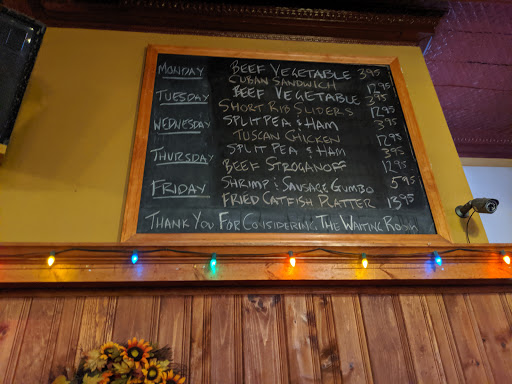 MONDAY BEEF VEGETABLE 3.95
CUBAN SANDWICH 12.95
TUESDAY BEEF VEGETABLE 3.95
SHORT RIB SLIDERS 12.95
WEDNESDAY SPLIT PEA & HAM 3.95
TUSCAN CHICKEN 12.95
THURSDAY SPLIT PEA & HAM 3.95
BEEF STROGANOFF 12.95
FRIDAY SHRIMP & SAUSAGE GUMBO 5.95
FRIED CATFISH PLATTER 13.95
THANK YOU FOR CONSIDERING THE WAITING ROOM